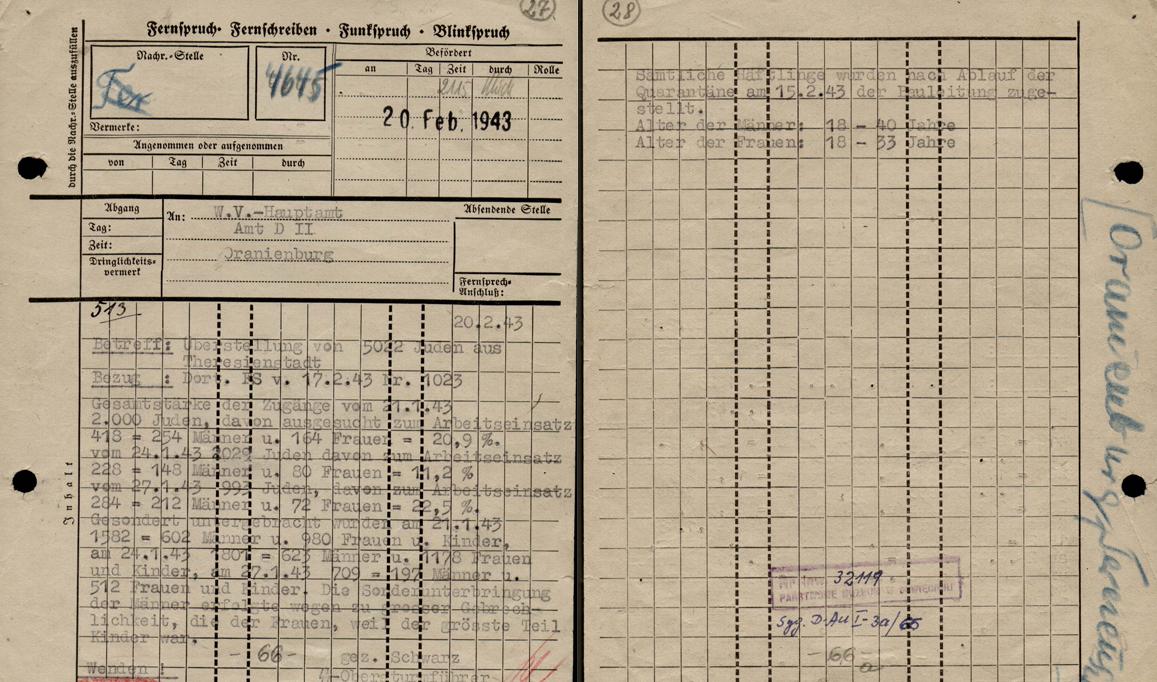 27
Fernspruch · Fernschreiben · Funkspruch · Blinkspruch
durch die Nachr.-Stelle auszufüllen
Nachr.-Stelle
Nr.
4645
Befördert
an Tag Zeit durch Rolle
2115
20. Feb. 1943
Vermerke:
Angenommen oder aufgenommen
von Tag Zeit durch
Abgang
Tag:
Zeit:
Dringlichkeits-
vermerk
An: W.V.-Hauptamt
Amt D II
Oranienburg
Absendende Stelle
Fernsprech-
Anschluß:
Inhalt
513
20.2.43
Betreff: Überstellung von 5022 Juden aus
Theresienstadt
Bezug : Dort. FS v. 17.2.43 Nr. 1023
Gesamtstärke der Zugänge vom 21.1.43
2.000 Juden, davon ausgesucht zum Arbeitseinsatz
418 = 254 Männer u. 164 Frauen = 20,9 %.
vom 24.1.43 2029 Juden davon zum Arbeitseinsatz
228 = 148 Männer u. 80 Frauen = 11,2 %
vom 27.1.43 993 Juden, davon zum Arbeitseinsatz
284 = 212 Männer u. 72 Frauen = 22,5 %.
Gesondert untergebracht wurden am 21.1.43
1582 = 602 Männer u. 980 Frauen u. Kinder,
am 24.1.43 1801 = 623 Männer u. 1178 Frauen
und Kinder, am 27.1.43 709 = 197 Männer u.
512 Frauen und Kinder. Die Sonderunterbringung
der Männer erfolgte wegen zu grosser Gebrech-
lichkeit, die der Frauen, weil der grösste Teil
Kinder war.
-66- gez. Schwarz
Wenden ! ᛋᛋ-Obersturmführer
28
Sämtliche Häftlinge wurden nach Ablauf der
Quarantäne am 15.2.43 der Bauleitung zuge-
stellt.
Alter der Männer: 18 - 40 Jahre
Alter der Frauen: 18 - 33 Jahre
Oranienburg
Nr Inw. 32119
Syg. D-Au I-3a/65
-66-
a